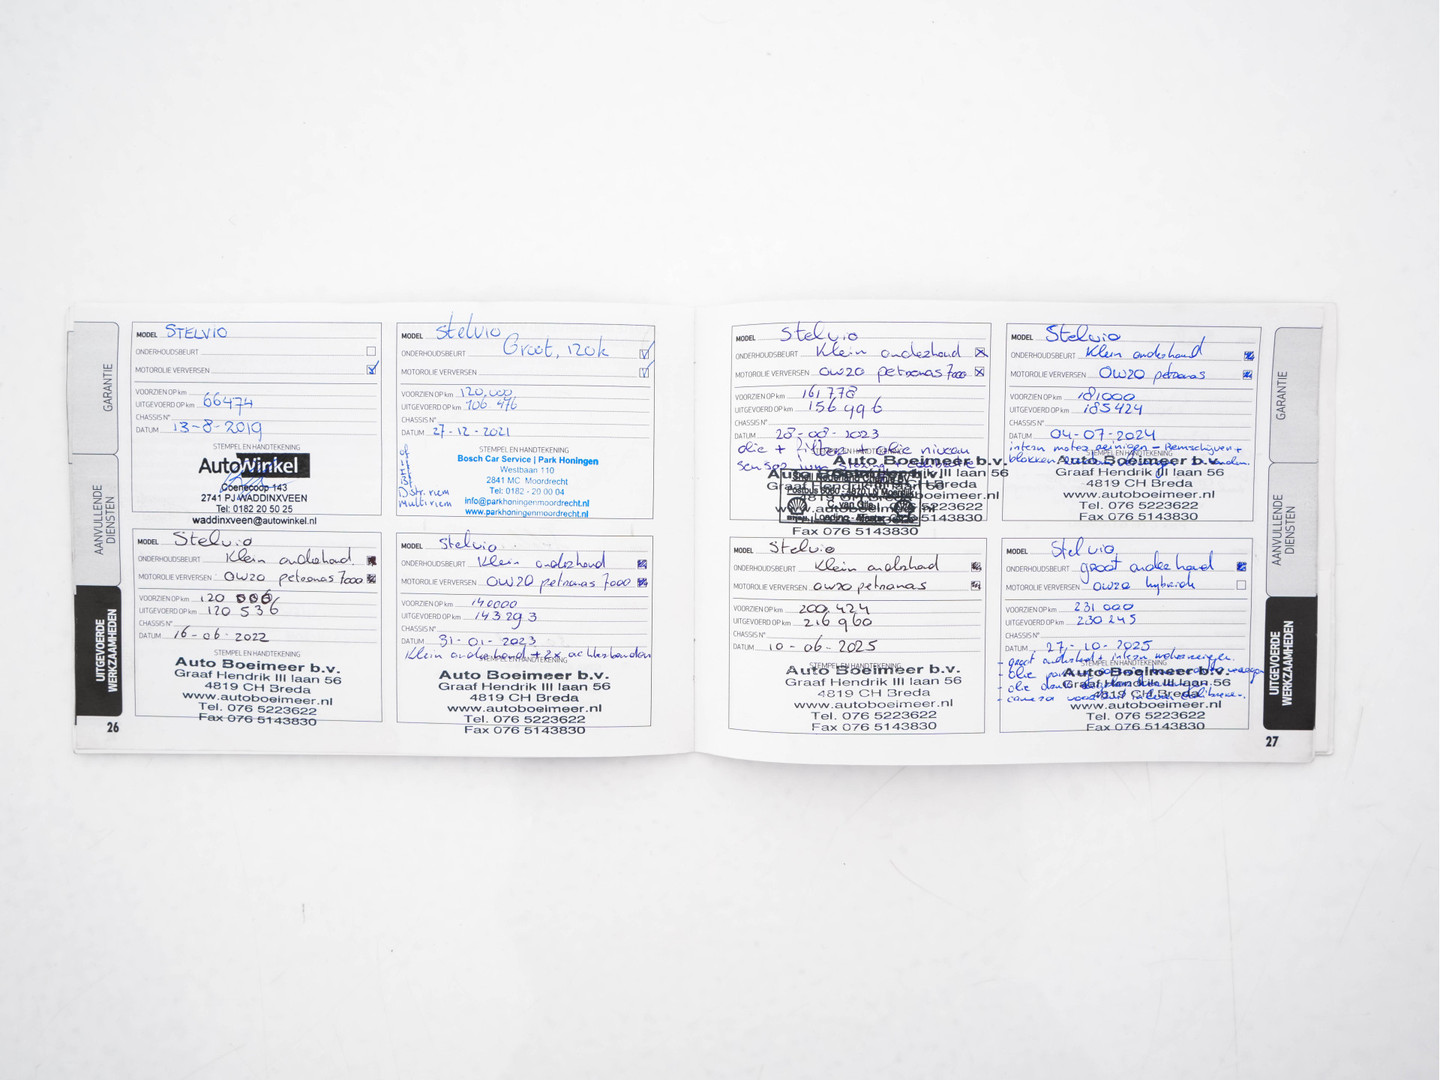 GARANTIE
AANVULLENDE
DIENSTEN
UITGEVOERDE
WERKZAAMHEDEN
MODEL STELVIO
ONDERHOUDSBEURT
MOTOROLIE VERVERSEN
VOORZIEN OP km
UITGEVOERD OP km 66474
CHASSIS N°
DATUM 13-8-2019
STEMPEL EN HANDTEKENING
AutoWinkel
Coenecoop 143
2741 PJ WADDINXVEEN
Tel: 0182 20 50 25
waddinxveen@autowinkel.nl
MODEL Stelvio
ONDERHOUDSBEURT Groot, 120k
MOTOROLIE VERVERSEN
VOORZIEN OP km 120.000
UITGEVOERD OP km 106 476
CHASSIS N°
DATUM 27-12-2021
STEMPEL EN HANDTEKENING
Distriem
multiriem
Bosch Car Service | Park Honingen
Westbaan 110
2841 MC Moordrecht
Tel: 0182 - 20 00 04
info@parkhoningenmoordrecht.nl
www.parkhoningenmoordrecht.nl
MODEL Stelvio
ONDERHOUDSBEURT Klein onderhoud
MOTOROLIE VERVERSEN OW20 petronas 7000
VOORZIEN OP km 120
UITGEVOERD OP km 120 536
CHASSIS N°
DATUM 16-06-2022
STEMPEL EN HANDTEKENING
Auto Boeimeer b.v.
Graaf Hendrik III laan 56
4819 CH Breda
www.autoboeimeer.nl
Tel. 076 5223622
Fax 076 5143830
MODEL Stelvio
ONDERHOUDSBEURT Klein onderhoud
MOTOROLIE VERVERSEN OW20 petronas 7000
VOORZIEN OP km 140000
UITGEVOERD OP km 143293
CHASSIS N°
DATUM 31-01-2023
Klein onderhoud + 2x achterbanden
STEMPEL EN HANDTEKENING
Auto Boeimeer b.v.
Graaf Hendrik III laan 56
4819 CH Breda
www.autoboeimeer.nl
Tel. 076 5223622
Fax 076 5143830
26
MODEL Stelvio
ONDERHOUDSBEURT Klein onderhoud
MOTOROLIE VERVERSEN OW20 petronas 7000
VOORZIEN OP km 161778
UITGEVOERD OP km 156496
CHASSIS N°
DATUM 28-08-2023
olie + filter + olie niveau
sensor
Auto Boeimeer b.v.
Graaf Hendrik III laan 56
4819 CH Breda
www.autoboeimeer.nl
Tel. 076 5223622
Fax 076 5143830
MODEL Stelvio
ONDERHOUDSBEURT Klein onderhoud
MOTOROLIE VERVERSEN OW20 petronas
VOORZIEN OP km 181000
UITGEVOERD OP km 185424
CHASSIS N°
DATUM 04-07-2024
intern motor reinigen - Remschijven +
blokken
STEMPEL EN HANDTEKENING
Auto Boeimeer b.v.
Graaf Hendrik III laan 56
4819 CH Breda
www.autoboeimeer.nl
Tel. 076 5223622
Fax 076 5143830
MODEL Stelvio
ONDERHOUDSBEURT Klein onderhoud
MOTOROLIE VERVERSEN ow20 petronas
VOORZIEN OP km 200.424
UITGEVOERD OP km 216960
CHASSIS N°
DATUM 10-06-2025
STEMPEL EN HANDTEKENING
Auto Boeimeer b.v.
Graaf Hendrik III laan 56
4819 CH Breda
www.autoboeimeer.nl
Tel. 076 5223622
Fax 076 5143830
MODEL Stelvio
ONDERHOUDSBEURT groot onderhoud
MOTOROLIE VERVERSEN ow20 hybride
VOORZIEN OP km 231 000
UITGEVOERD OP km 230 245
CHASSIS N°
DATUM 27-10-2025
- groot onderhoud + intern motorreinigen
STEMPEL EN HANDTEKENING
- olie
- olie
- camera
Auto Boeimeer b.v.
Graaf Hendrik III laan 56
4819 CH Breda
www.autoboeimeer.nl
Tel. 076 5223622
Fax 076 5143830
27
GARANTIE
AANVULLENDE
DIENSTEN
UITGEVOERDE
WERKZAAMHEDEN